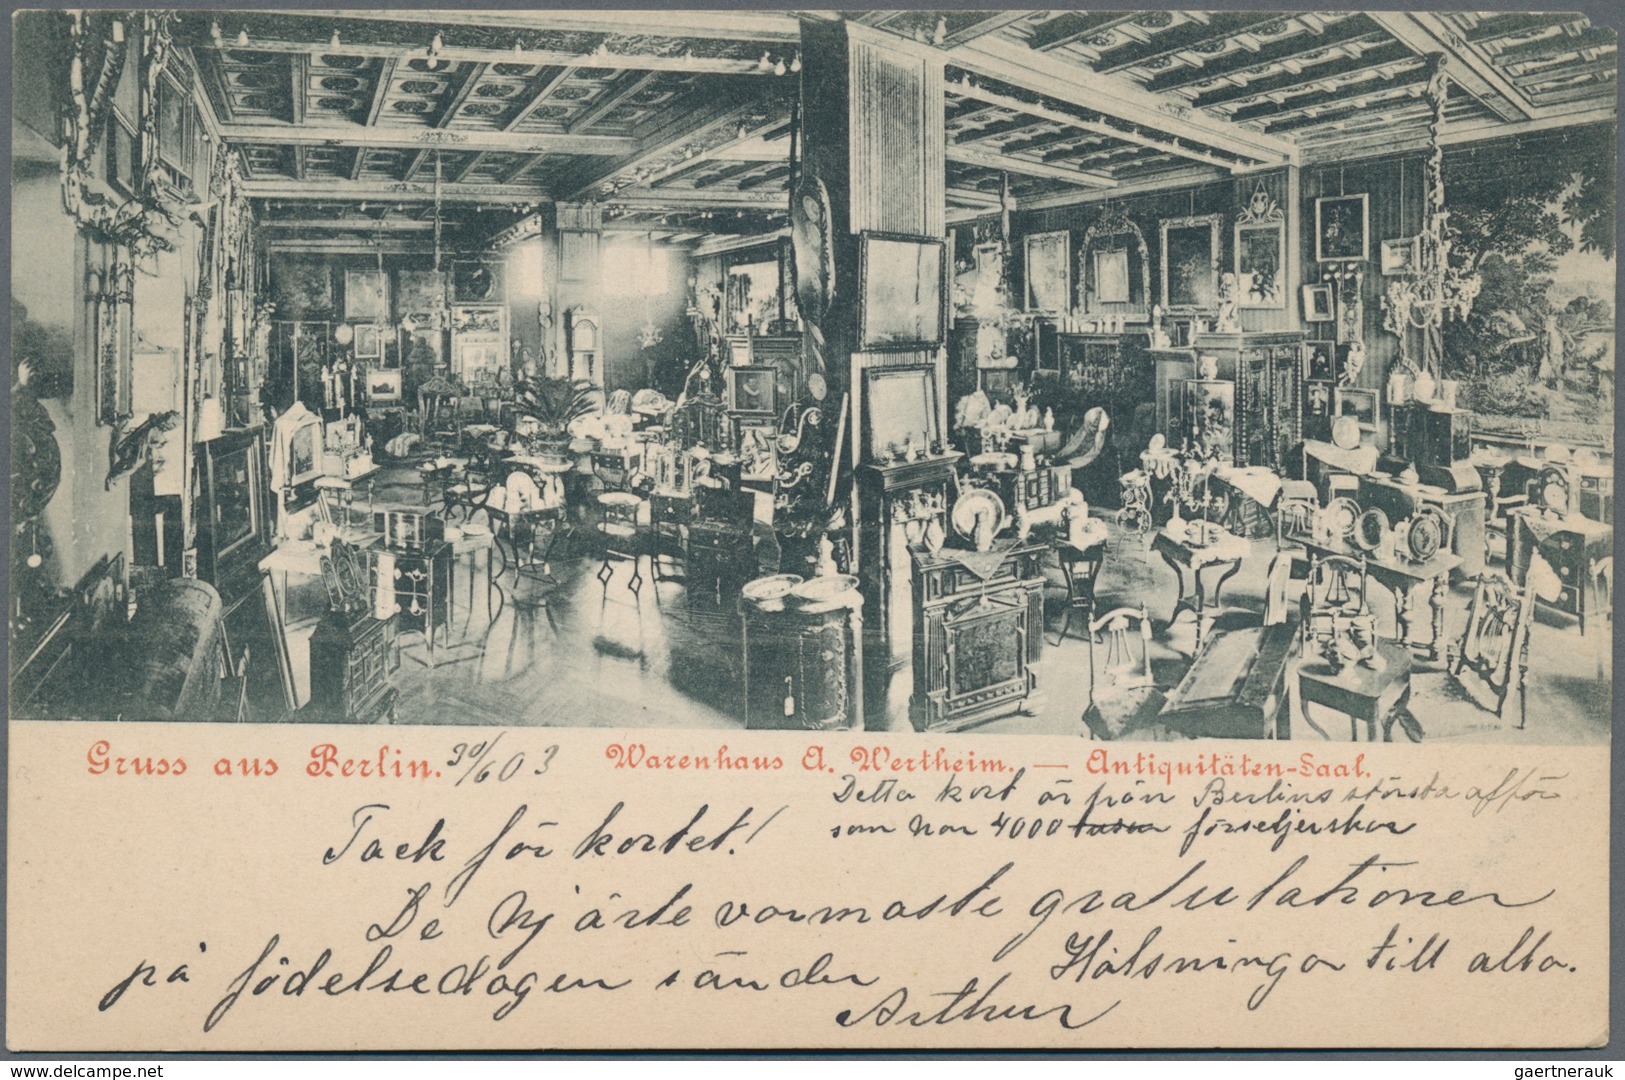 Gruss aus Berlin. 30/6 03 Warenhaus A. Wertheim. — Antiquitäten-Saal.
Detta kort är från Berlins största affär
som har 4000 försäljerskor
Tack för kortet!
De hjärtevarmaste gratulationer
på födelsedagen sänder Hälsningar till alla.
Arthur
delcampe.net
gaertnerauk